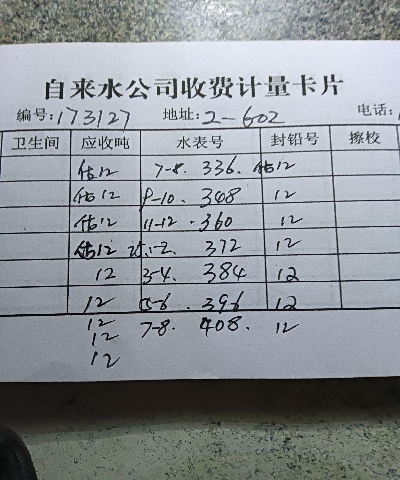 自来水公司收费计量卡片
编号:173127 地址:2-602 电话:
卫生间 应收吨 水表号 封铅号 擦校
估12 7-8. 336. 估12
估12 9-10. 348 12
估12 11-12. 360 12
估12 25.1-2. 372 12
12 3-4. 384 12
12 5-6. 396 12
12 7-8. 408. 12
12
12